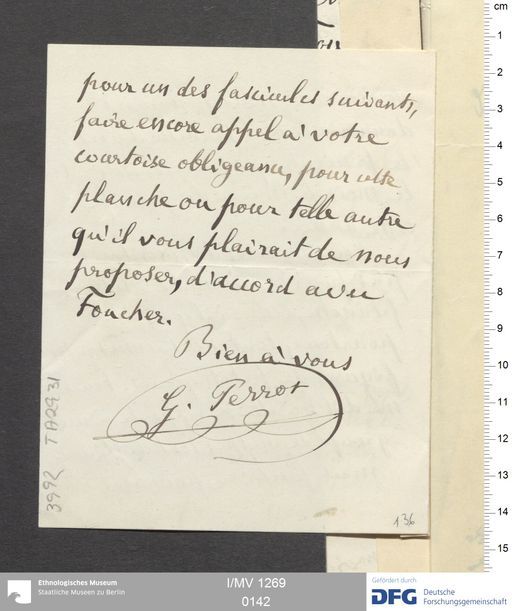 pour un des fascicules suivants,
faire encore appel à votre
courtoise obligeance, pour cette
planche ou pour telle autre
qu'il vous plairait de nous
proposer, d'accord avec
Foucher.
Bien à vous
G. Perrot
3992 TA2931
136
cm
1
2
3
4
5
6
7
8
9
10
11
12
13
14
15
Ethnologisches Museum
Staatliche Museen zu Berlin
I/MV 1269
0142
Gefördert durch
DFG Deutsche
Forschungsgemeinschaft